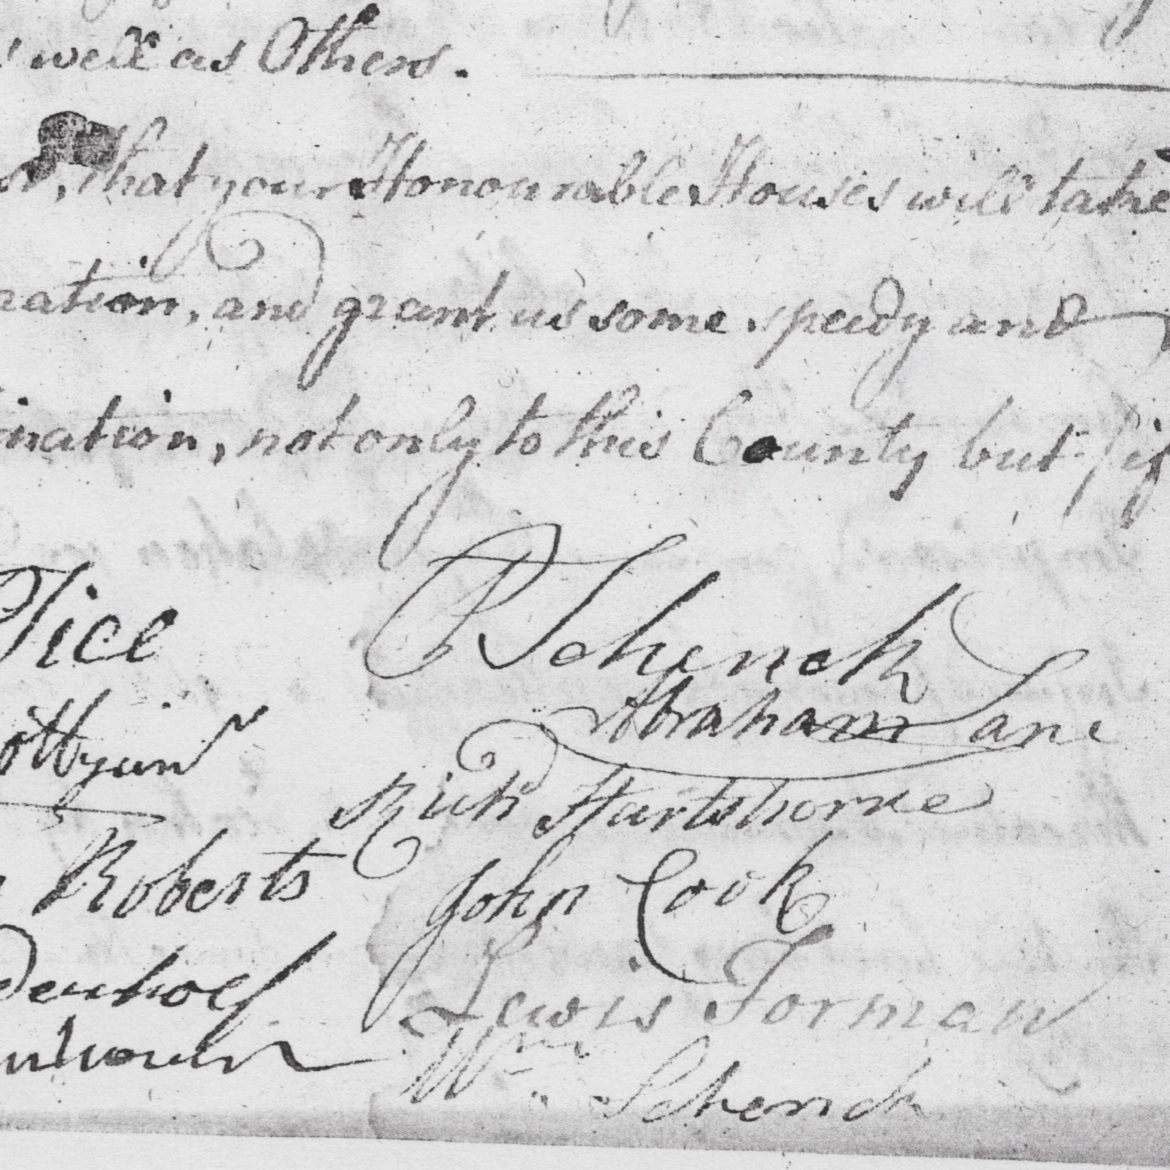 well as Others.
that your Honourable Houses will take
ration, and grant us some speedy and
ination, not only to this County but if
Tice
P Schenck
Abraham Lane
Wyun
Rich Hartshorne
Roberts
John Cook
Denhoef
Lewis Forman
Wm Schenck